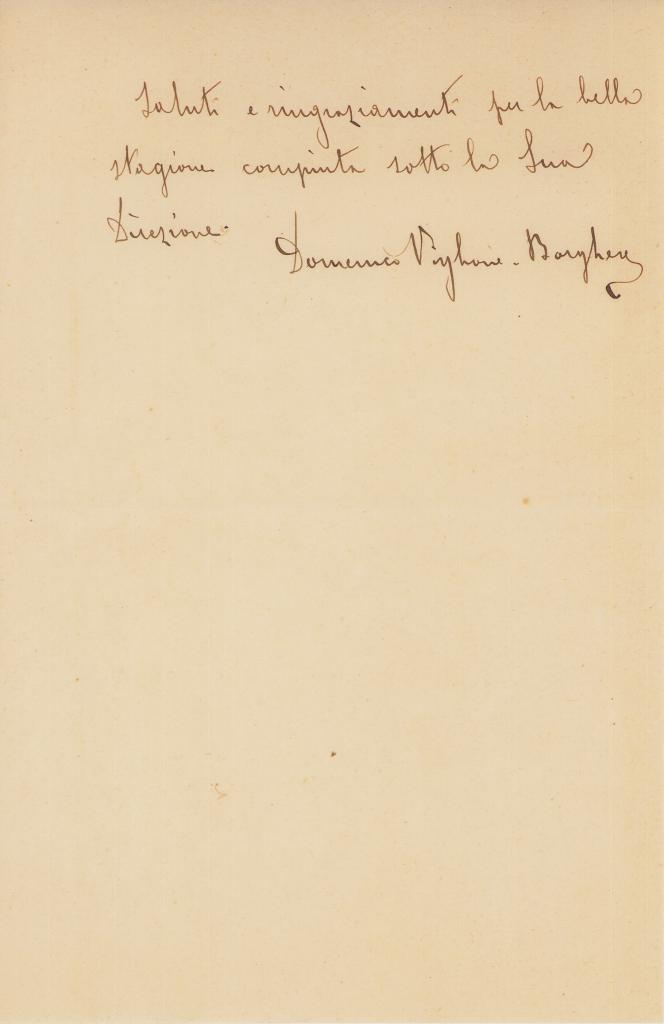 Saluti e ringraziamenti per la bella
stagione compiuta sotto la Sua
Direzione.
Domenico Viglione-Borghese